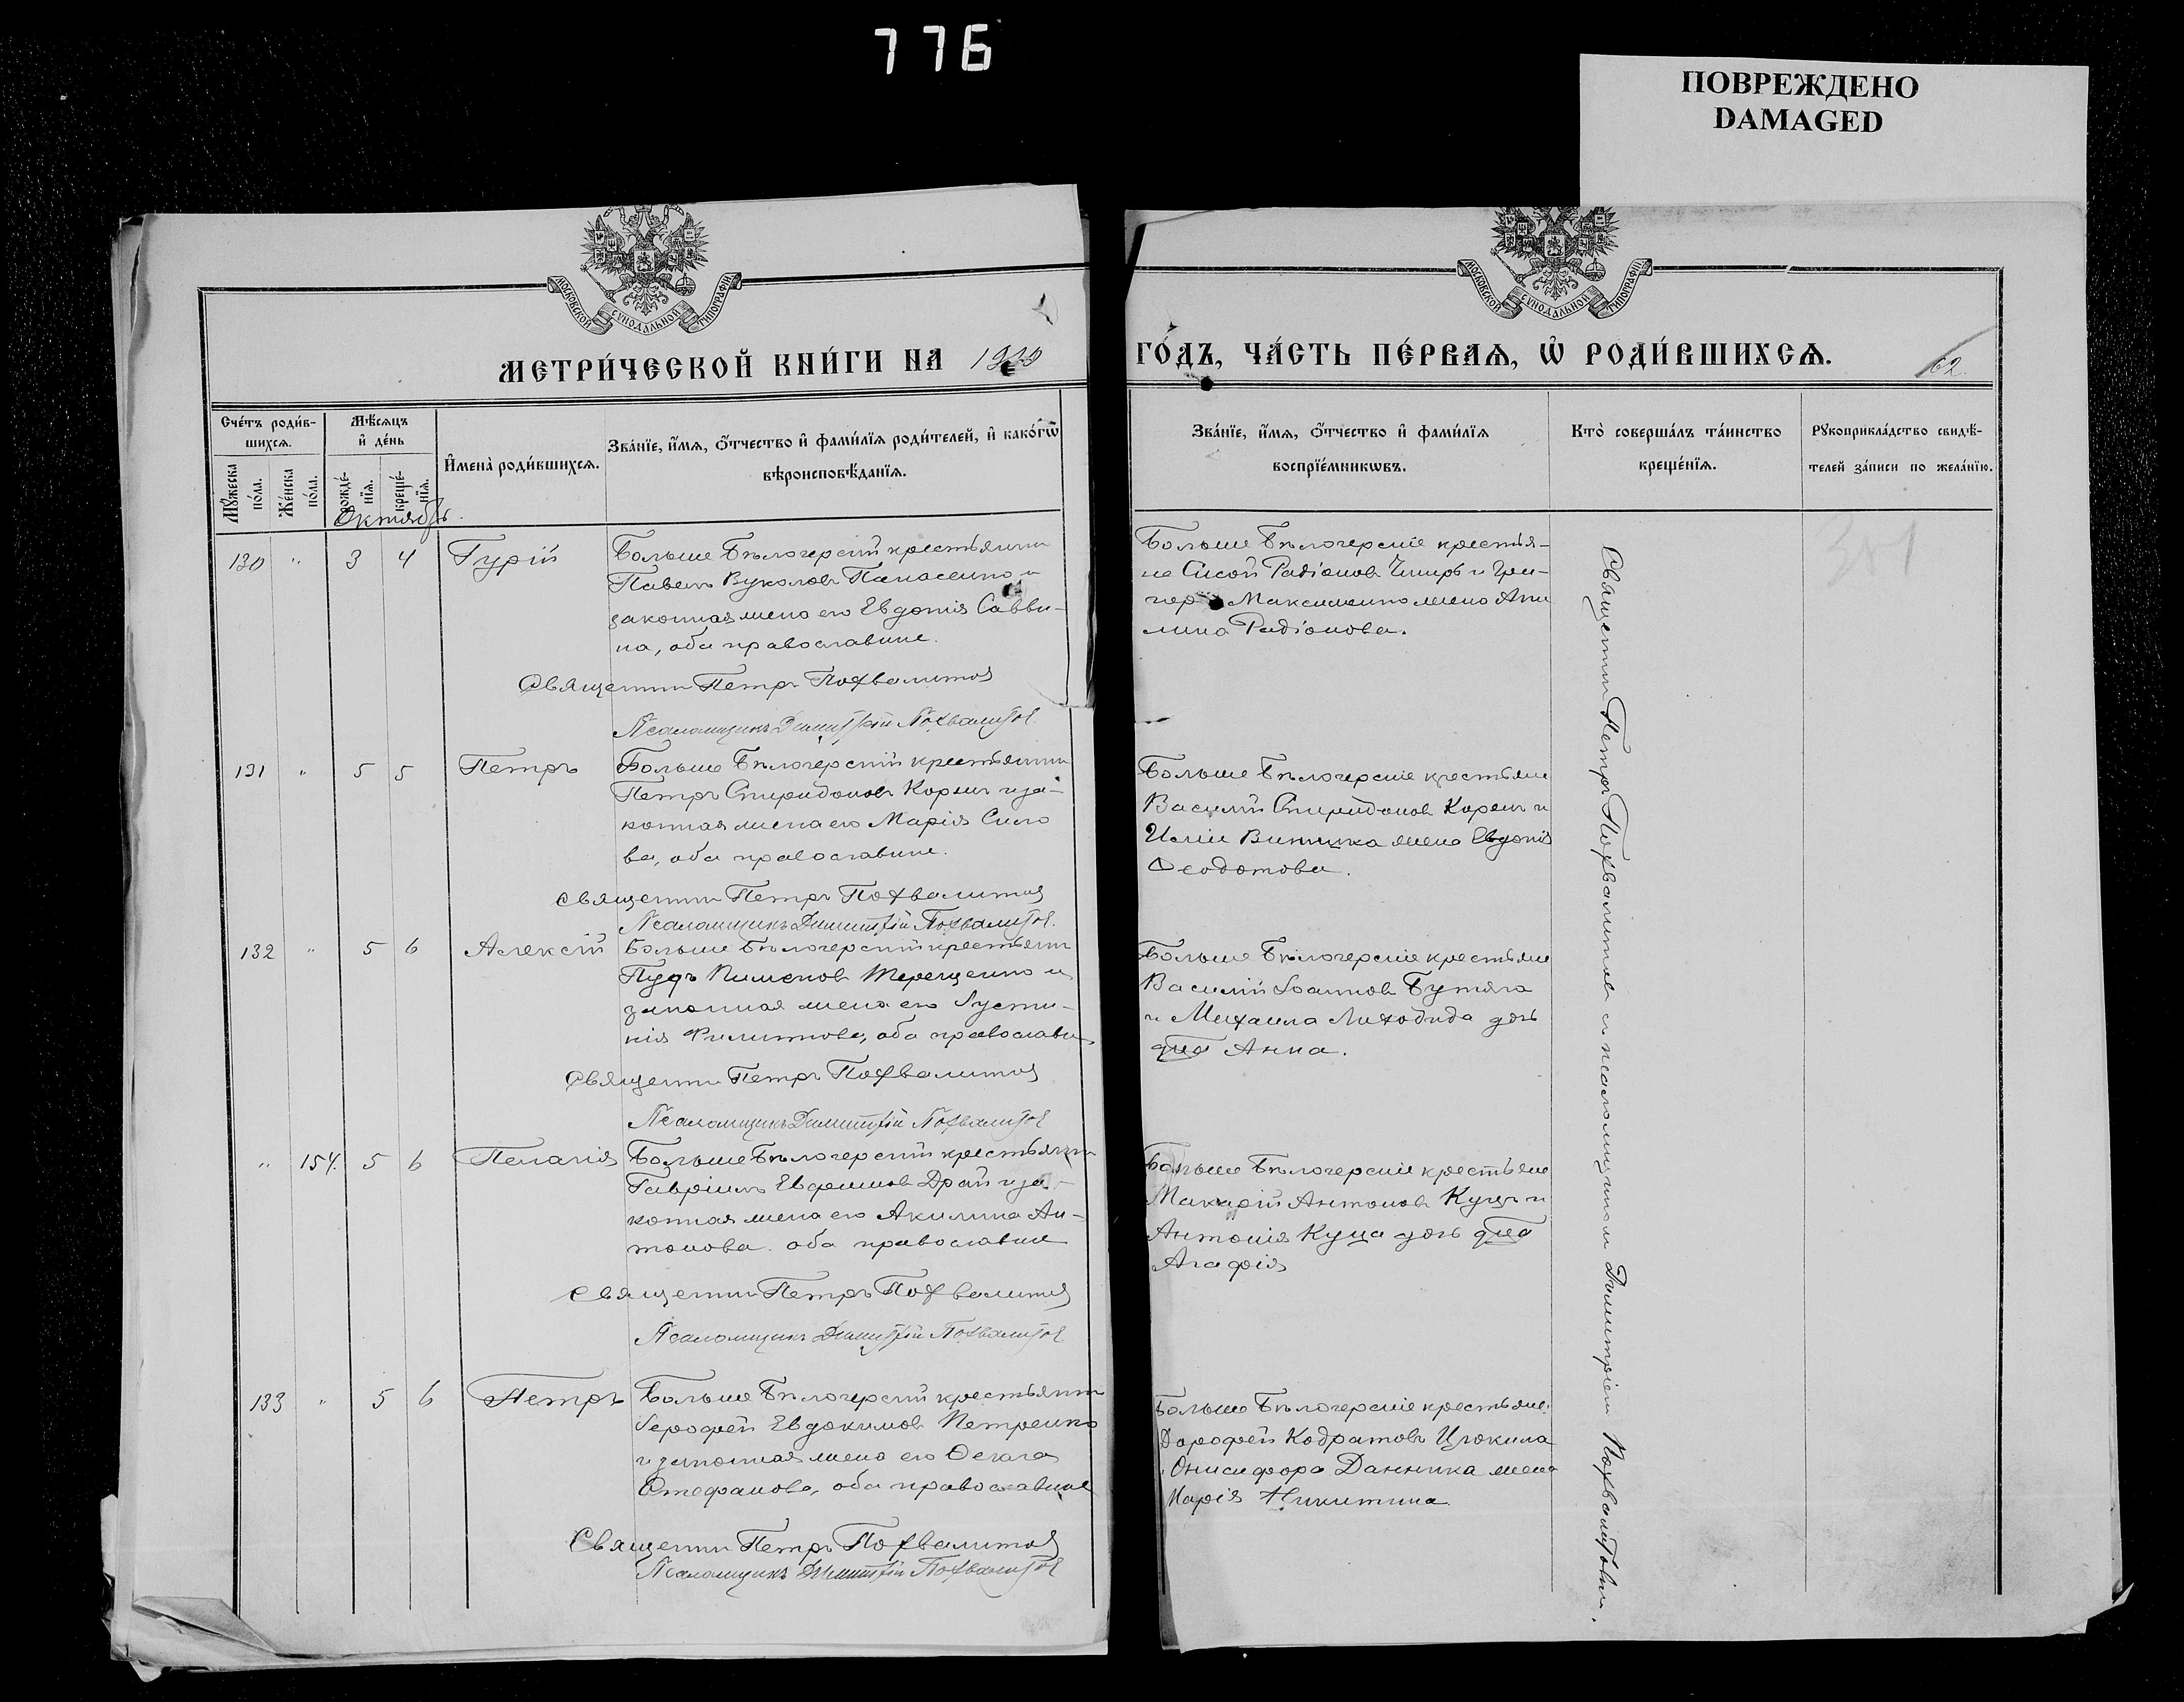 776
ПОВРЕЖДЕНО
DAMAGED
МОСКОВСКОЙ СѴНОДАЛЬНОЙ ТИПОГРАФІИ.
МОСКОВСКОЙ СѴНОДАЛЬНОЙ ТИПОГРАФІИ.
МЕТРИ́ЧЕСКОЙ КНИ́ГИ НА 1920
ГО́ДЪ, ЧА́СТЬ ПЕ́РВАЯ, Ѡ҆ РОДИ́ВШИХСЯ.
62
Сче́тъ роди́в-
шихся.
Мѣ́сяцъ
и҆ де́нь
Мꙋ́жеска
по́ла.
Же́нска
по́ла.
рожде́-
нїя.
креще́-
нїя.
И҆мена̀ роди́вшихся.
Зва́нїе, и҆́мя, ѻ҆́тчество и҆ фами́лїя роди́телей, и҆ како́гѡ
вѣроисповѣ́данїя.
Зва́нїе, и҆́мя, ѻ҆́тчество и҆ фами́лїя
воспрїе́мникѡвъ.
Кто̀ соверша́лъ та́инство
креще́нїя.
Рꙋкоприкла́дство свидѣ́-
телей за́писи по жела́нїю.
Октябрь
130 " 3 4 Гурій
Больше Бѣлозерскій крестьянинъ
Павелъ Вуколовъ Панасенко и
законная жена его Евдокія Савви-
на, оба православные.
Священникъ Петръ Похвалитовъ
Псаломщикъ Димитрій Похвалитовъ
Больше Бѣлозерскіе крестья-
не Сисой Радіоновъ и Гри-
гор Максименко жена Аки
лина Радіонова.
301
131 " 5 5 Петръ
Больше Бѣлозерскій крестьянинъ
Петръ Спиридоновъ Корженъ и за-
конная жена его Марія Сило
ва, оба православные.
Священникъ Петръ Похвалитовъ
Псаломщикъ Димитрій Похвалитовъ.
Больше Бѣлозерскіе крестьяне
Василій Спиридоновъ Корженъ и
Винника жена Евдокія
Феодотова.
132 " 5 6 Алексій
Больше Бѣлозерскій крестьянинъ
Пудъ Пименовъ Терещенко и
законная жена его Іусти-
нія Филиппова, оба православн
Священникъ Петръ Похвалитовъ
Псаломщикъ Димитрій Похвалитовъ
Больше Бѣлозерскіе крестьяне
Василій Іоанновъ Бутяга
и Михаила Лиходида дочь
дѣва Анна.
" 154. 5 6 Пелагія
Больше Бѣлозерскій крестьянинъ
Гавріилъ Евфимовъ Драй и за-
конная жена его Акилина Ан-
тонова. оба православные
Священникъ Петръ Похвалитовъ
Псаломщикъ Димитрій Похвалитовъ
Больше Бѣлозерскіе крестьяне
Макарій Антоновъ Куцъ и
Антонія Куца дочь дѣва
Агафія
133 " 5 6 Петръ
Больше Бѣлозерскій крестьянинъ
Іерофей Евдокимовъ Петренко
и законная жена его Фекла
Стефанова, оба православные
Священникъ Петръ Похвалитовъ
Псаломщикъ Димитрій Похвалитовъ
Больше Бѣлозерскіе крестьяне
Дорофей Кодратовъ Цюкила
Онисифора Данника жена
Марія Никитина
Священникъ Петръ Похвалитовъ съ псаломщикомъ Димитріемъ Похвалитовымъ.